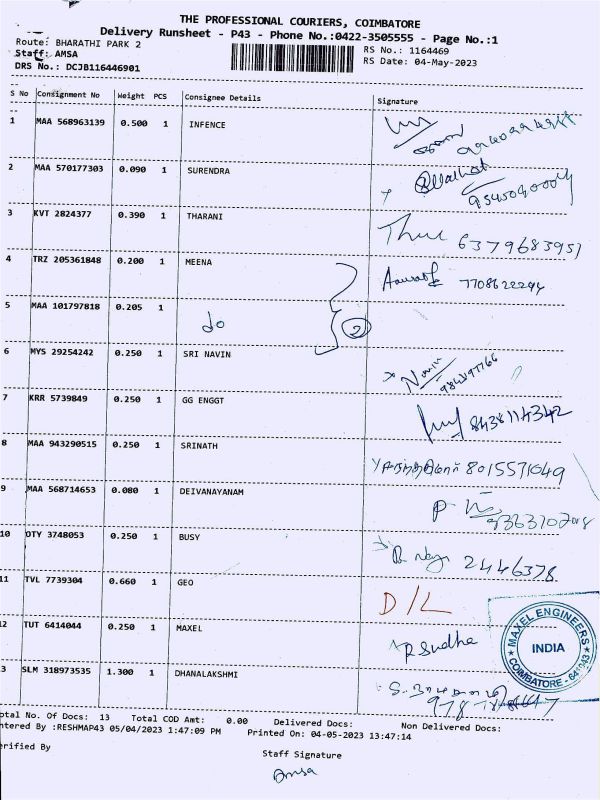 THE PROFESSIONAL COURIERS, COIMBATORE
Delivery Runsheet - P43 - Phone No.:0422-3505555 - Page No.:1
Route: BHARATHI PARK 2 RS No.: 1164469
Staff: AMSA RS Date: 04-May-2023
DRS No.: DCJB116446901
S No Consignment No Weight PCS Consignee Details Signature
1 MAA 568963139 0.500 1 INFENCE
2 MAA 570177303 0.090 1 SURENDRA
3 KVT 2824377 0.390 1 THARANI 6379683951
4 TRZ 205361848 0.200 1 MEENA 7708622294
5 MAA 101797818 0.205 1 do 2
6 MYS 29254242 0.250 1 SRI NAVIN Navin
7 KRR 5739849 0.250 1 GG ENGGT 8438114342
8 MAA 943290515 0.250 1 SRINATH 8015571049
9 MAA 568714653 0.080 1 DEIVANAYANAM
10 OTY 3748053 0.250 1 BUSY 2446378
11 TVL 7739304 0.660 1 GEO D/L
12 TUT 6414044 0.250 1 MAXEL P Sudha
MAXEL ENGINEERS
INDIA
COIMBATORE - 641043
13 SLM 318973535 1.300 1 DHANALAKSHMI
otal No. Of Docs: 13 Total COD Amt: 0.00 Delivered Docs: Non Delivered Docs:
ntered By :RESHMAP43 05/04/2023 1:47:09 PM Printed On: 04-05-2023 13:47:14
erified By Staff Signature
Amsa